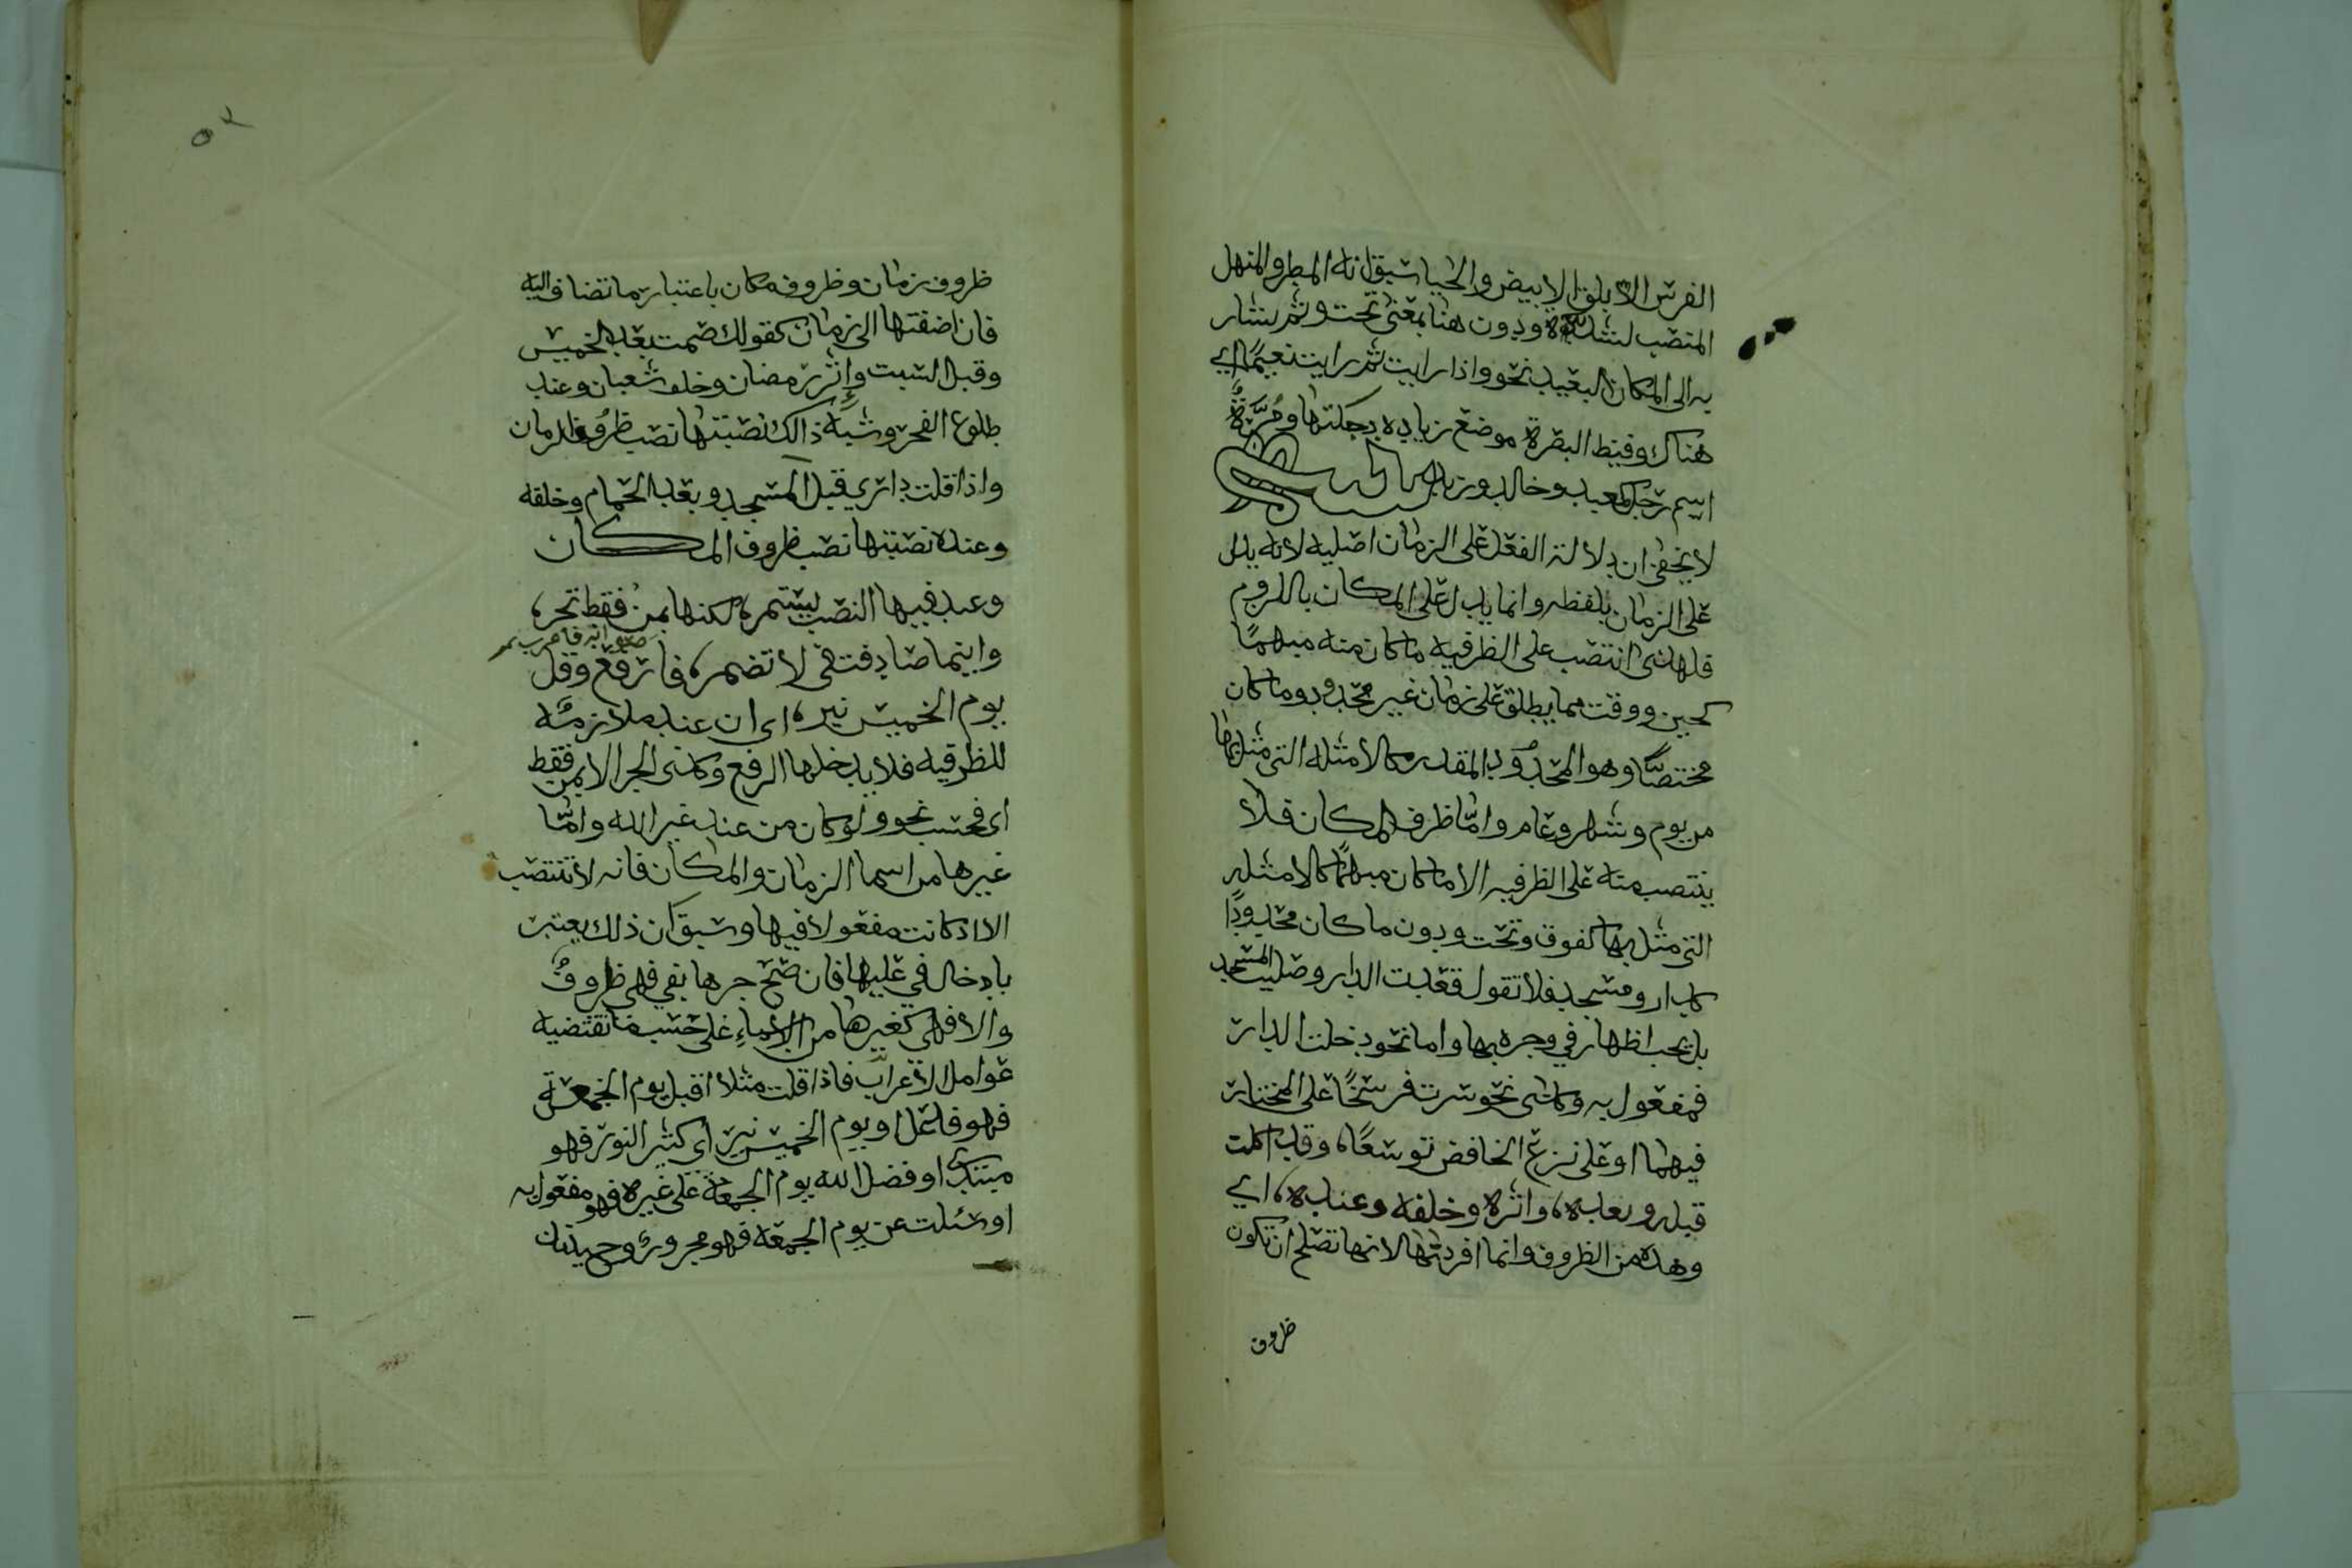 الفرس الابلق الابيض والحيا سبق انه المطر والمنهل
المنصب لشدته ودون هنا بمعنى تحت وثم يشار
به الى المكان البعيد نحو واذا رايت ثم رايت نعيما اي
هناك وفيط البصرة موضع زياده بدجلتها ومُرَّةٌ
اسم رجل كمعبد وخالد وزيد
لا يخفى ان دلالة الفعل على الزمان اصليه لانه يدل
على الزمان بلفظه وانما يدل على المكان باللزوم
فلهذى انتصب على الظرفيه ما كان منه مبهمًا
كحين ووقت مما يطلق على زمان غير محدود وما كان
مختصًّا وهو المحدود المقدر كالامثله التى مثل بها
من يوم وشهر وعام وامّا ظرف المكان فلا
ينتصب منه على الظرفيه الا ما كان مبهمًا كالامثله
التى مثل بها كفوق وتحت ودون ما كان محدودًا
كدار ومسجد فلا تقول قعدت الدار وصليت المسجد
بل يجب اظهار في وجره بها واما نحو دخلت الدار
فمفعول به وكذى نحو سرت فرسخًا على المختار
فيهما او على نزع الخافض توسعًا، وقد اكلت
قبله وبعده، واثره وخلفه وعنده، اي
وهذه من الظروف وانما افردتها لانها تصلح ان تكون
ظروف
٥٢
ظروف زمان وظروف مكان باعتبار ما تضاف اليه
فان اضفتها الى زمان كقولك صمت بعد الخميس
وقبل السبت وإثر رمضان وخلف شعبان وعند
طلوع الفجر وشبه ذالك نصبتها نصب ظروف الزمان
واذا قلت داري قبل المسجد وبعد الحمام وخلفه
وعنده نصبتها نصب ظروف المكان
وعند فيها النصب يستمر، لكنها بمن فقط تجر،
واينما صادفت في لا تضمر، فارفع وقل
يوم الخميس نير، اى ان عند ملازمة
للظرفيه فلا يدخلها الرفع وكذى الجر الا بمن فقط
اى فحسب نحو ولو كان من عند غير الله وامّا
غيرها من اسما الزمان والمكان فانه لا تنتصب
الا اذ كانت مفعولا فيها وسبق ان ذلك يعتبر
بادخال في عليها فان صح جرها بفي فهى ظروفٌ
والا فهى كغيرها من الاسماءِ على حسب ما تقتضيه
عوامل الاعراب فاذا قلت مثلا اقبل يوم الجمعة
فهو فاعل او يوم الخميس نير اى كثير النور فهو
مبتدى او فضل الله يوم الجمعة على غيره فهو مفعول به
او سئلت عن يوم الجمعة فهو مجرور وحينئذ